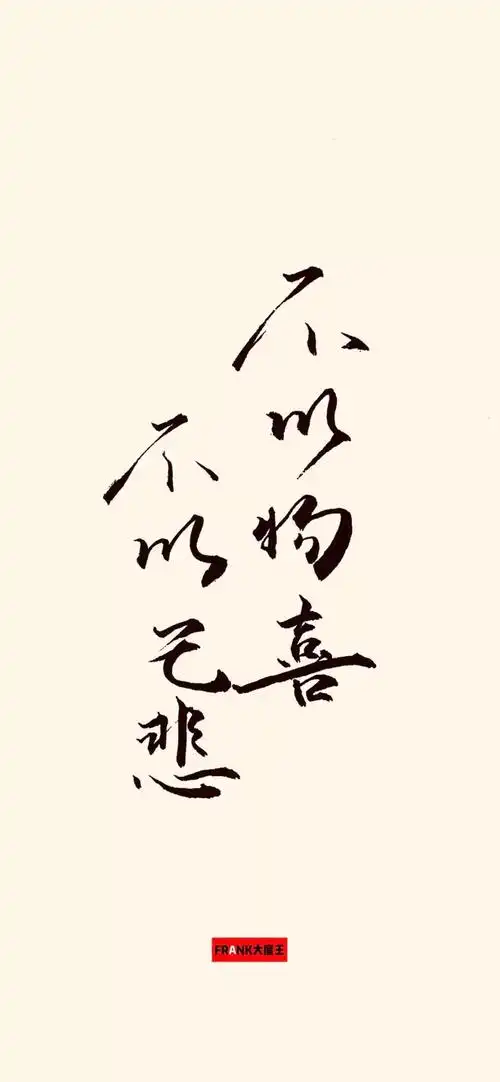 不以物喜
不以己悲
FRANK大魔王